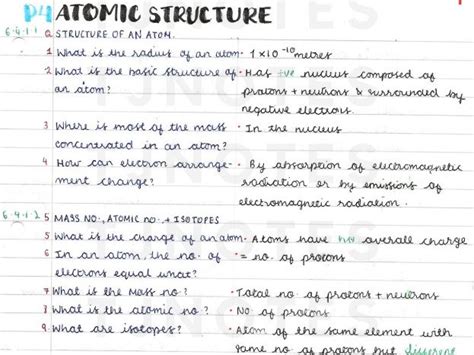 P4 ATOMIC STRUCTURE
6.4.1.1 Q STRUCTURE OF AN ATOM.
1 What is the radius of an atom · 1×10⁻¹⁰ metres
2 What is the basic structure of · Has +ve nucleus composed of
an atom? protons + neutrons & surrounded by
negative electrons.
3 Where is most of the mass · In the nucleus
concenerated in an atom?
4 How can electron arrange- · By absorption of electromagnetic
ment change? radiation or by emissions of
electromagnetic radiation.
6.4.1.2 5 MASS NO., ATOMIC no. + ISOTOPES
5 What is the charge of an atom · Atoms have no overall charge
6 In an atom, the no. of · = no. of protons
electrons equal what?
7 What is the Mass no.? · Total no. of protons + neutrons
8 What is the atomic no.? · No. of protons
9 What are isotopes? · Atom of the same element with
same no. of protons but different
TJNOTES
TJNOTES
TJNOTES
TJNOTES